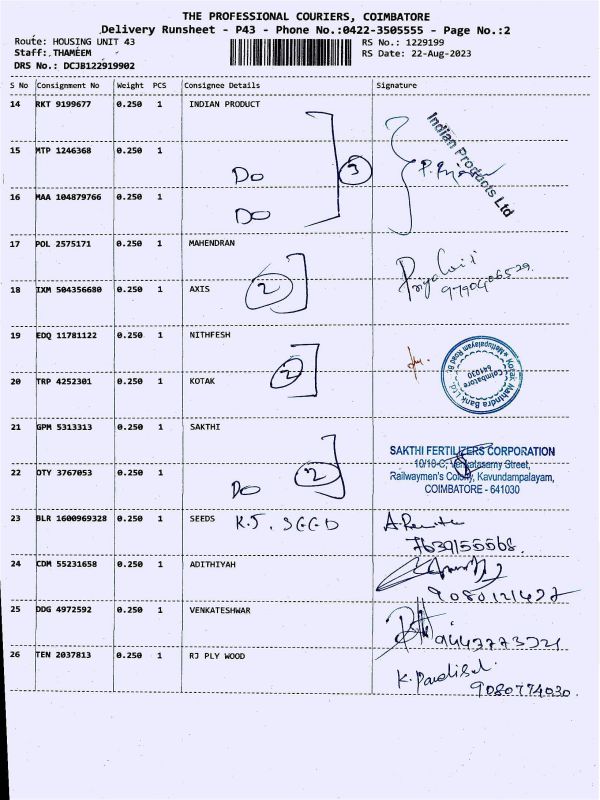 THE PROFESSIONAL COURIERS, COIMBATORE
Delivery Runsheet - P43 - Phone No.:0422-3505555 - Page No.:2
Route: HOUSING UNIT 43 RS No.: 1229199
Staff: THAMEEM RS Date: 22-Aug-2023
DRS No.: DCJB122919902
S No Consignment No Weight PCS Consignee Details Signature
14 RKT 9199677 0.250 1 INDIAN PRODUCT
Indian Products Ltd
15 MTP 1246368 0.250 1 Do 3
16 MAA 104879766 0.250 1 Do
17 POL 2575171 0.250 1 MAHENDRAN
18 IXM 504356680 0.250 1 AXIS 2 9790406529
19 EDQ 11781122 0.250 1 NITHFESH
Kotak Mahindra Bank Ltd. Mettupalayam Road Br.
Coimbatore 641030
20 TRP 4252301 0.250 1 KOTAK 2
21 GPM 5313313 0.250 1 SAKTHI
SAKTHI FERTILIZERS CORPORATION
10/10-C, Venkatasamy Street,
Railwaymen's Colony, Kavundampalayam,
COIMBATORE - 641030
22 OTY 3767053 0.250 1 Do 2
23 BLR 1600969328 0.250 1 SEEDS K.J. SEED
7639155568
24 CDM 55231658 0.250 1 ADITHIYAH
9080121427
25 DDG 4972592 0.250 1 VENKATESHWAR
26 TEN 2037813 0.250 1 RJ PLY WOOD
9080774030